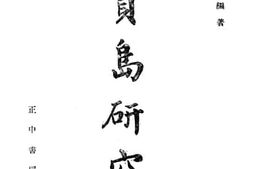 編著
島研究
正中書局